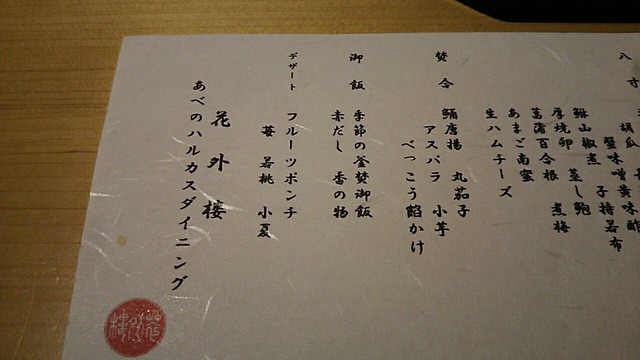 八寸
胡瓜
蟹味噌黄味酢
子持若布
鮴山椒煮 蒸し鮑
厚焼卵 煮梅
菖蒲百合根
あまご南蛮
生ハムチーズ
焚合
鯒唐揚 丸茄子
アスパラ 小芋
べっこう餡かけ
御飯
季節の釜焚御飯
赤だし 香の物
デザート
フルーツポンチ
苺 若桃 小夏
花外楼
あべのハルカスダイニング
花外楼